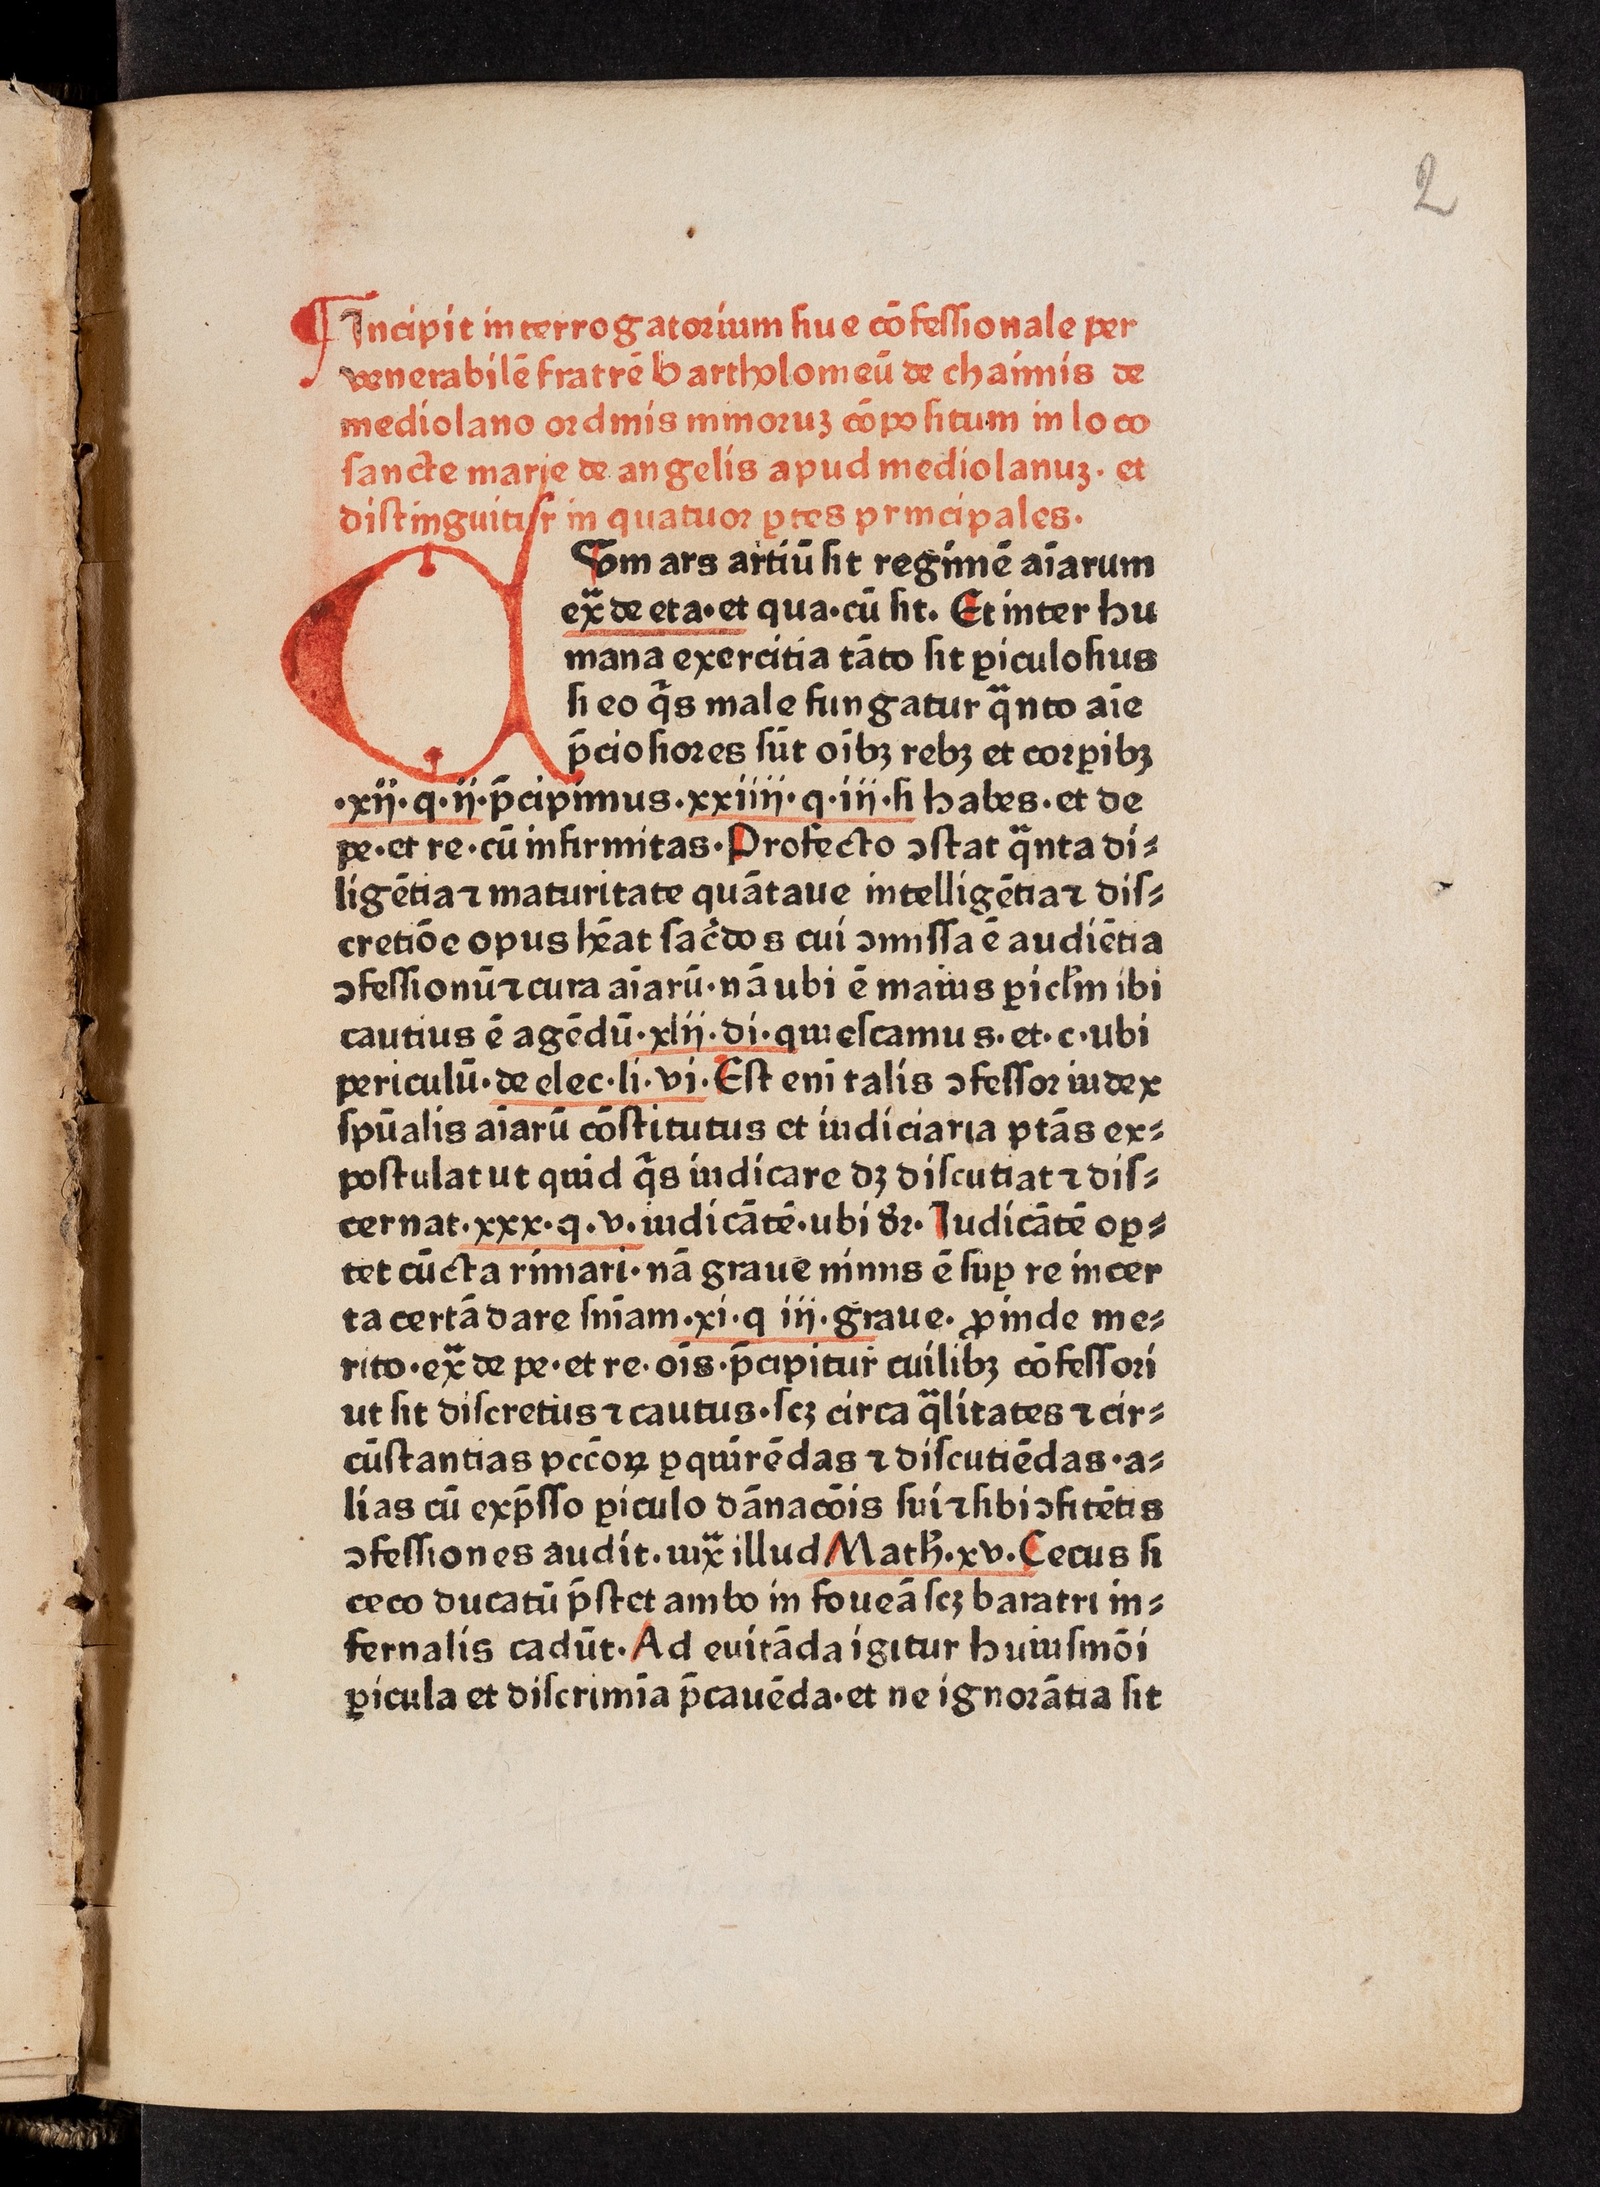 2
Incipit interrogatorium siue cōfessionale per
venerabilē fratrē bartholomeū de chaimis de
mediolano ordinis minoruꝫ cōpositum in loco
sancte marie de angelis apud mediolanuꝫ. et
distinguitur in quatuor ꝑtes principales.
Q Vom ars artiū sit regimē aīarum
ex̄ de eta·et qua·cū sit. Et inter hu
mana exercitia tāto sit ꝑiculosius
si eo q̄s male fungatur q̄nto aīe
p̄ciosiores sūt oībꝫ rebꝫ et corꝑibꝫ
·xij·q·ij·p̄cipimus·xxiiij·q·iij·si habes·et de
pe·et re·cū infirmitas·Profecto ↄstat q̄nta di⸗
ligētia ⁊ maturitate quātaue intelligētia ⁊ dis⸗
cretiōe opus hēat sac̄dos cui ↄmissa ē audiētia
ↄfessionū ⁊ cura aīarū·nā ubi ē maius ꝑicl̄m ibi
cautius ē agēdū·xlij·di·quiescamus·et·c·ubi
periculū·de elec·li·vi·Est eni talis ↄfessor iudex
spūalis aīarū cōstitutus et iudiciaria ptās ex⸗
postulat ut quid q̄s iudicare dꝫ discutiat ⁊ dis⸗
cernat·xxx·q·v·iudicātē·ubi dr̄·Iudicātē oꝑ⸗
tet cūcta rimari·nā graue nimis ē suꝑ re incer
ta certā dare sniam·xi·q iij·graue· ꝓinde me⸗
rito·ex̄ de pe·et re·oīs·p̄cipitur cuilibꝫ cōfessori
ut sit discretus ⁊ cautus·scꝫ circa q̄litates ⁊ cir⸗
cūstantias pcc̄oꝝ ꝑquirēdas ⁊ discutiēdas·a⸗
lias cū exp̄sso ꝑiculo dānacōis sui ⁊ sibi ↄfitētis
ↄfessiones audit·iux̄ illud Math̄·xv·Cecus si
ceco ducatū p̄stet ambo in foueā scꝫ baratri in⸗
fernalis cadūt·Ad euitāda igitur huiusmōi
ꝑicula et discrimīa p̄cauēda·et ne ignorātia sit